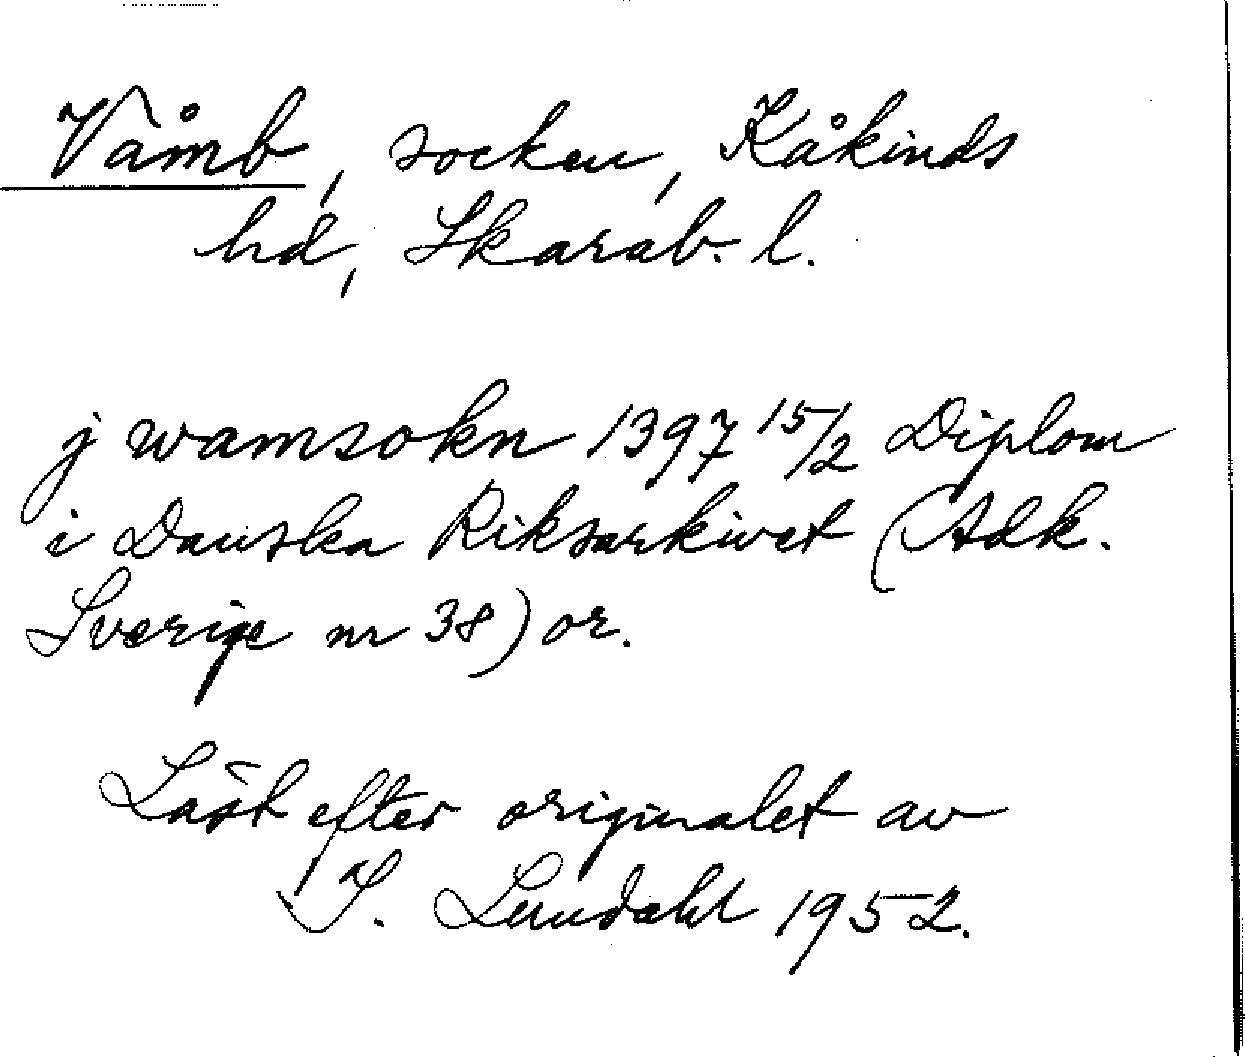 Våmb, socken, Kåkinds
hd, Skarab. l.
j wamsokn 1397 15/2 Diplom
i Danska Riksarkivet (Adk.
Sverige nr 38) or.
Läst efter originalet av
I. Lundahl 1952.